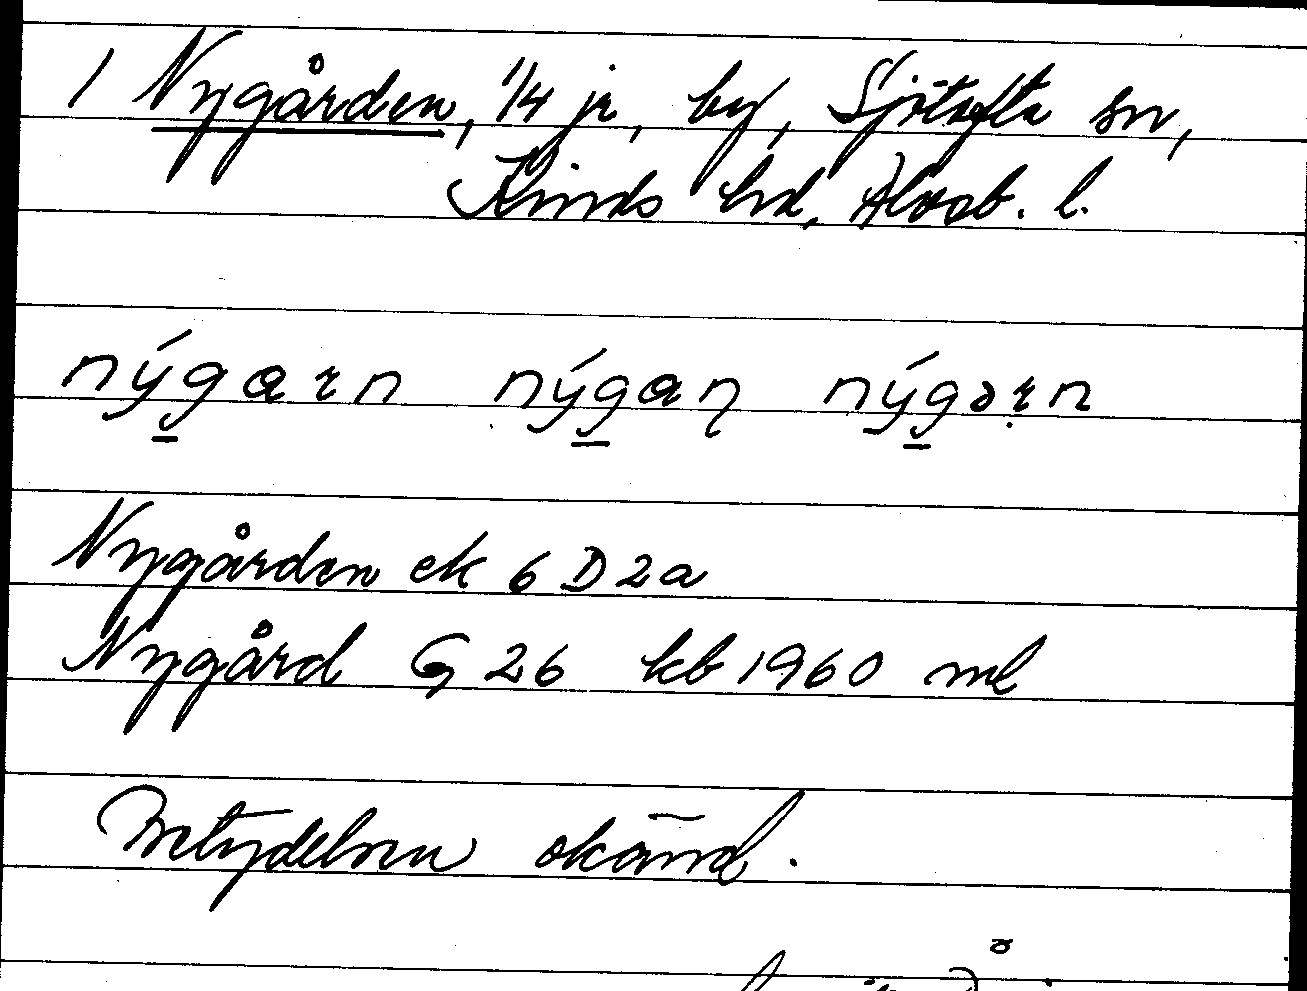 1 Nygården, 1/4 jr, by, Sjötofta sn,
Kinds hd, Älvsb. l.
nýgarn nýgaɳ nýgərn
Nygården ek 6 D 2a
Nygård G 26 kb 1960 ml
Betydelsen okänd.